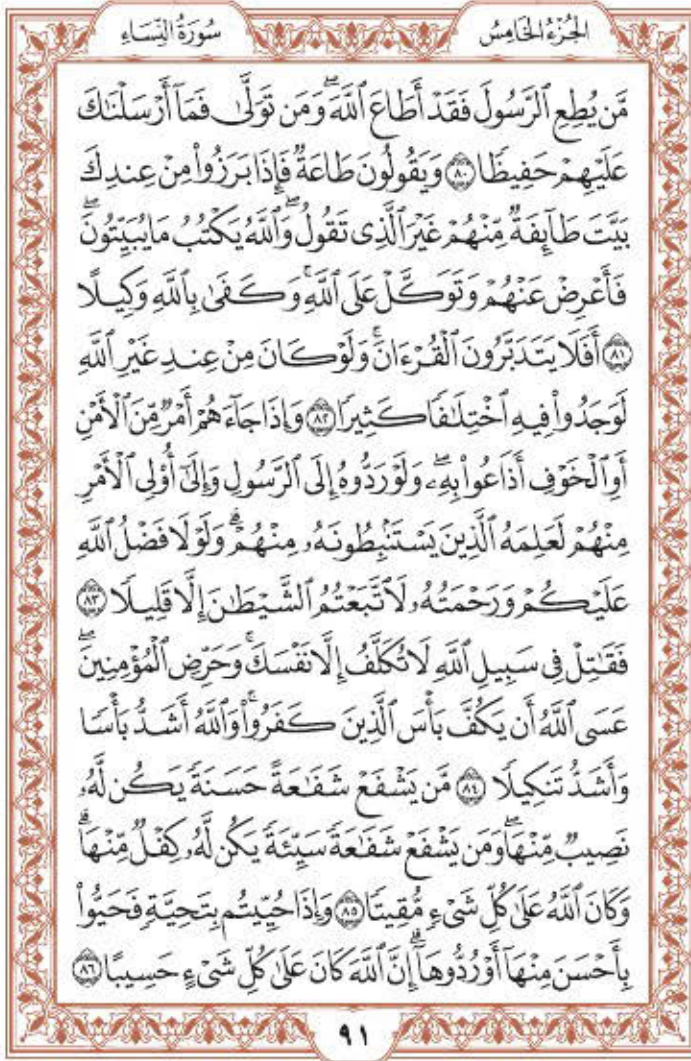 الجُزْءُ الخَامِسُ
سُورَةُ النِّسَاءِ
مَّن يُطِعِ ٱلرَّسُولَ فَقَدْ أَطَاعَ ٱللَّهَۖ وَمَن تَوَلَّىٰ فَمَآ أَرْسَلْنَٰكَ
عَلَيْهِمْ حَفِيظٗا ٨٠ وَيَقُولُونَ طَاعَةٞ فَإِذَا بَرَزُواْ مِنْ عِندِكَ
بَيَّتَ طَآئِفَةٞ مِّنْهُمْ غَيْرَ ٱلَّذِي تَقُولُۖ وَٱللَّهُ يَكْتُبُ مَا يُبَيِّتُونَۖ
فَأَعْرِضْ عَنْهُمْ وَتَوَكَّلْ عَلَى ٱللَّهِۚ وَكَفَىٰ بِٱللَّهِ وَكِيلًا
٨١ أَفَلَا يَتَدَبَّرُونَ ٱلْقُرْءَانَۚ وَلَوْ كَانَ مِنْ عِندِ غَيْرِ ٱللَّهِ
لَوَجَدُواْ فِيهِ ٱخْتِلَٰفٗا كَثِيرٗا ٨٢ وَإِذَا جَآءَهُمْ أَمْرٞ مِّنَ ٱلْأَمْنِ
أَوِ ٱلْخَوْفِ أَذَاعُواْ بِهِۦۖ وَلَوْ رَدُّوهُ إِلَى ٱلرَّسُولِ وَإِلَىٰٓ أُوْلِي ٱلْأَمْرِ
مِنْهُمْ لَعَلِمَهُ ٱلَّذِينَ يَسْتَنۢبِطُونَهُۥ مِنْهُمْۗ وَلَوْلَا فَضْلُ ٱللَّهِ
عَلَيْكُمْ وَرَحْمَتُهُۥ لَٱتَّبَعْتُمُ ٱلشَّيْطَٰنَ إِلَّا قَلِيلٗا ٨٣
فَقَٰتِلْ فِي سَبِيلِ ٱللَّهِ لَا تُكَلَّفُ إِلَّا نَفْسَكَۚ وَحَرِّضِ ٱلْمُؤْمِنِينَۖ
عَسَى ٱللَّهُ أَن يَكُفَّ بَأْسَ ٱلَّذِينَ كَفَرُواْۚ وَٱللَّهُ أَشَدُّ بَأْسٗا
وَأَشَدُّ تَنكِيلٗا ٨٤ مَّن يَشْفَعْ شَفَٰعَةً حَسَنَةٗ يَكُن لَّهُۥ
نَصِيبٞ مِّنْهَاۖ وَمَن يَشْفَعْ شَفَٰعَةٗ سَيِّئَةٗ يَكُن لَّهُۥ كِفْلٞ مِّنْهَاۗ
وَكَانَ ٱللَّهُ عَلَىٰ كُلِّ شَيْءٖ مُّقِيتٗا ٨٥ وَإِذَا حُيِّيتُم بِتَحِيَّةٖ فَحَيُّواْ
بِأَحْسَنَ مِنْهَآ أَوْ رُدُّوهَآۗ إِنَّ ٱللَّهَ كَانَ عَلَىٰ كُلِّ شَيْءٍ حَسِيبًا ٨٦
٩١